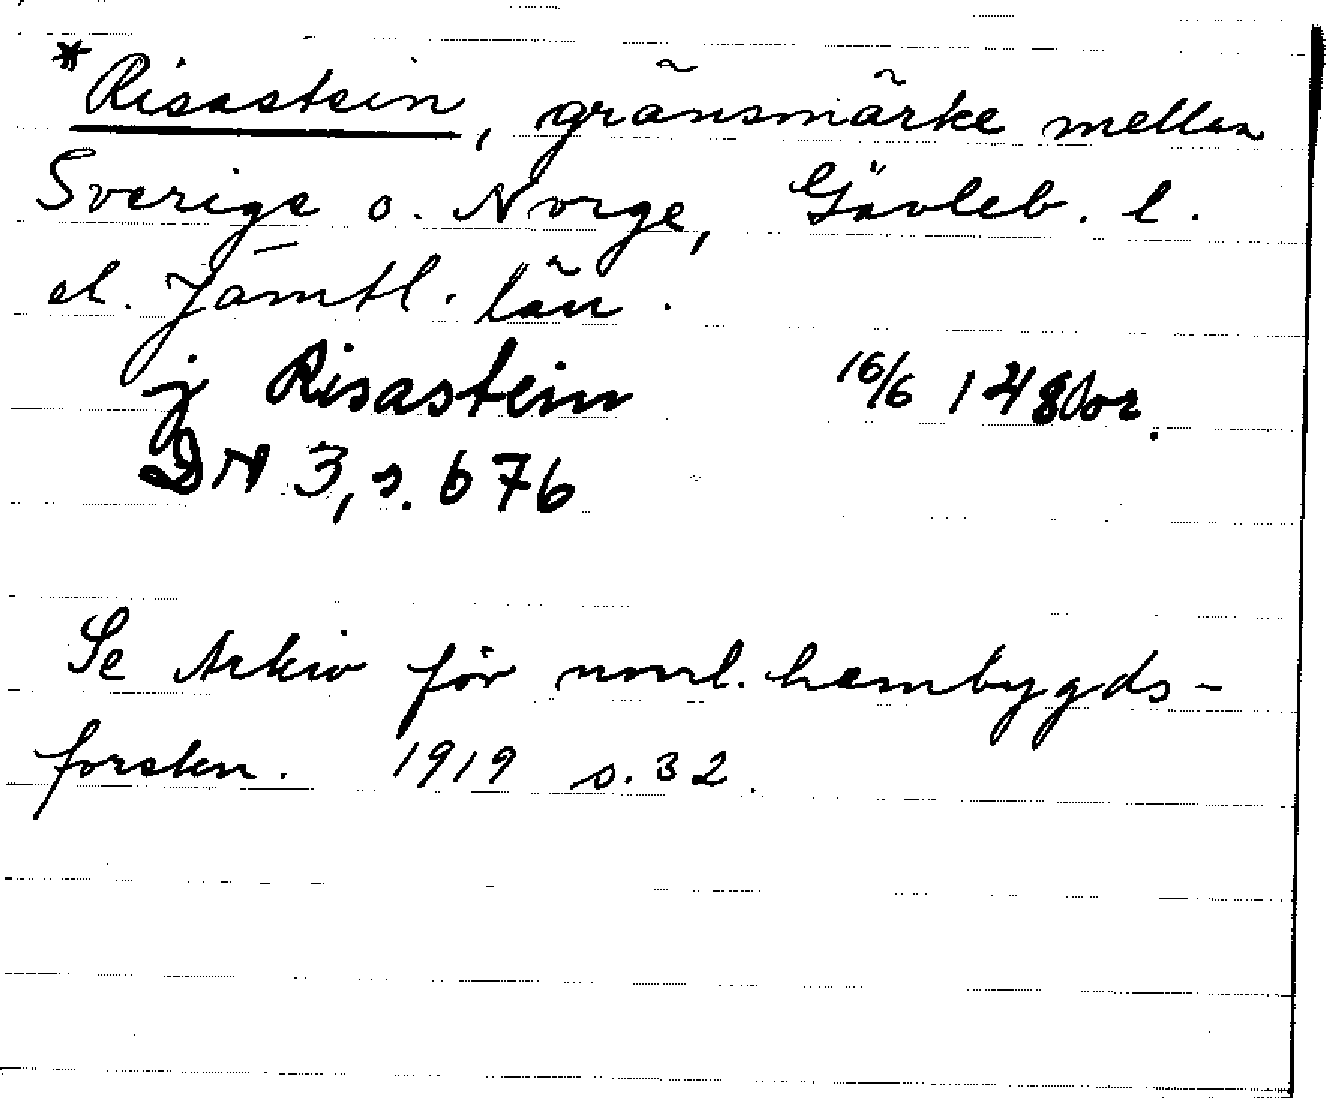 *Risastein, gränsmärke mellan
Sverige o. Norge, Gävleb. l.
el. Jämtl. län.
j Risastein 16/6 1480 or.
DN 3, s. 676
Se Arkiv för norrl. hembygds-
forskn. 1919 s. 32.